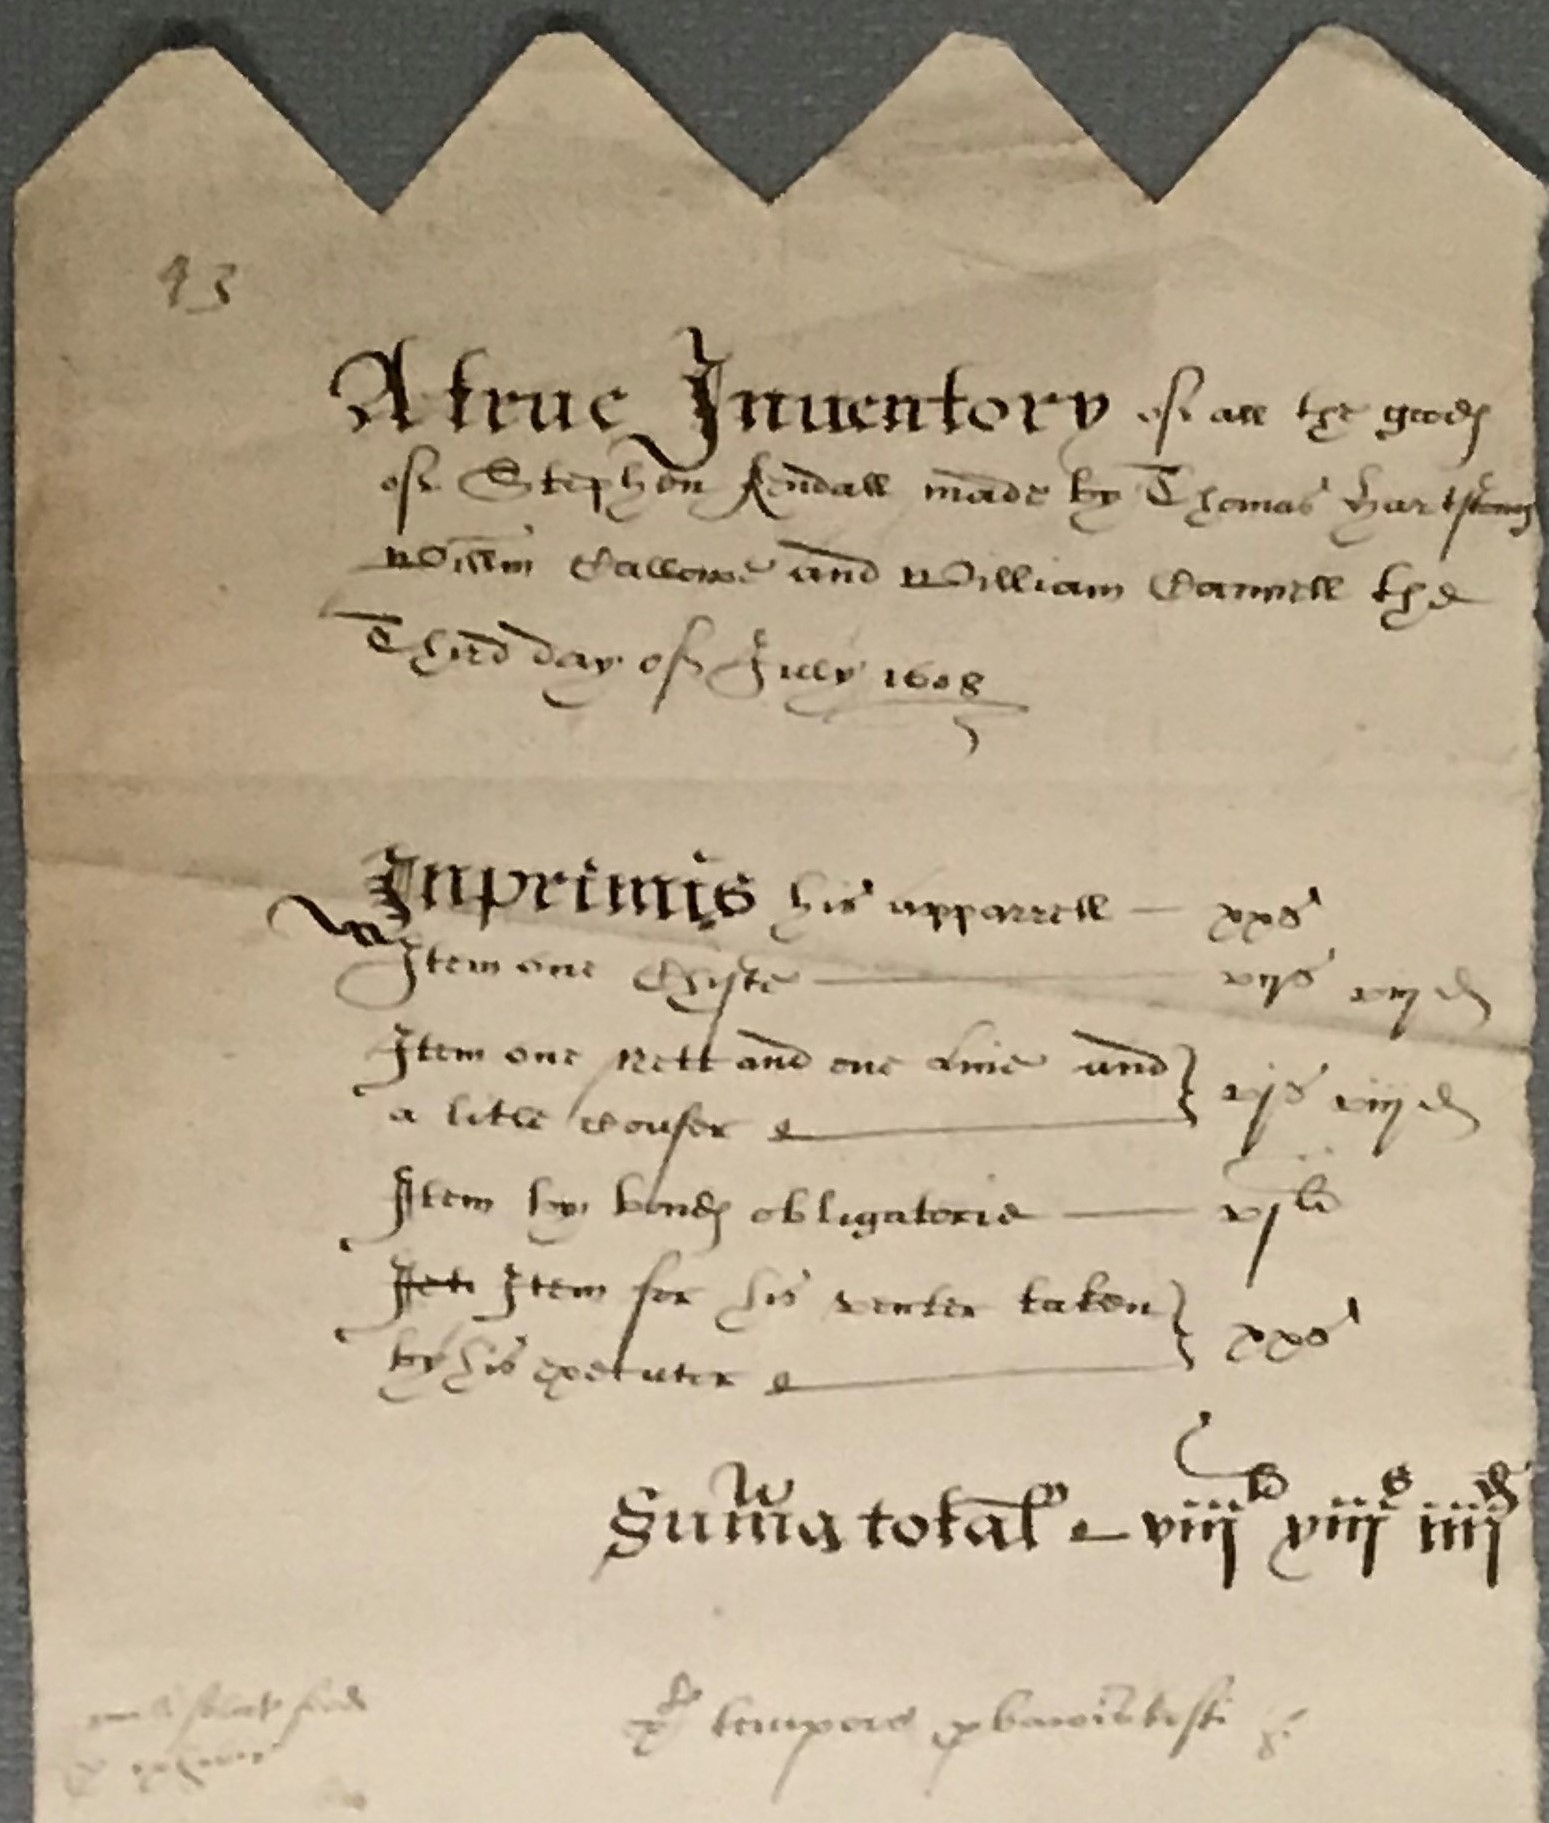 93
A true Inuentory of all the goods
of Stephen Kendall made by Thomas Hartstong
Willm Callowe and William Cannell the
Third day of July 1608
Inprimis his apparrell — xxs
Item one Chiste — vijs viijd
Item one Nett and one Line and
a litle Coufer — vijs viijd
Item by bonds obligatorie — vjli
Iteti Item for his venter taken
by his executer — xxs
Summa total — viijli xiijs iiijd
tempore